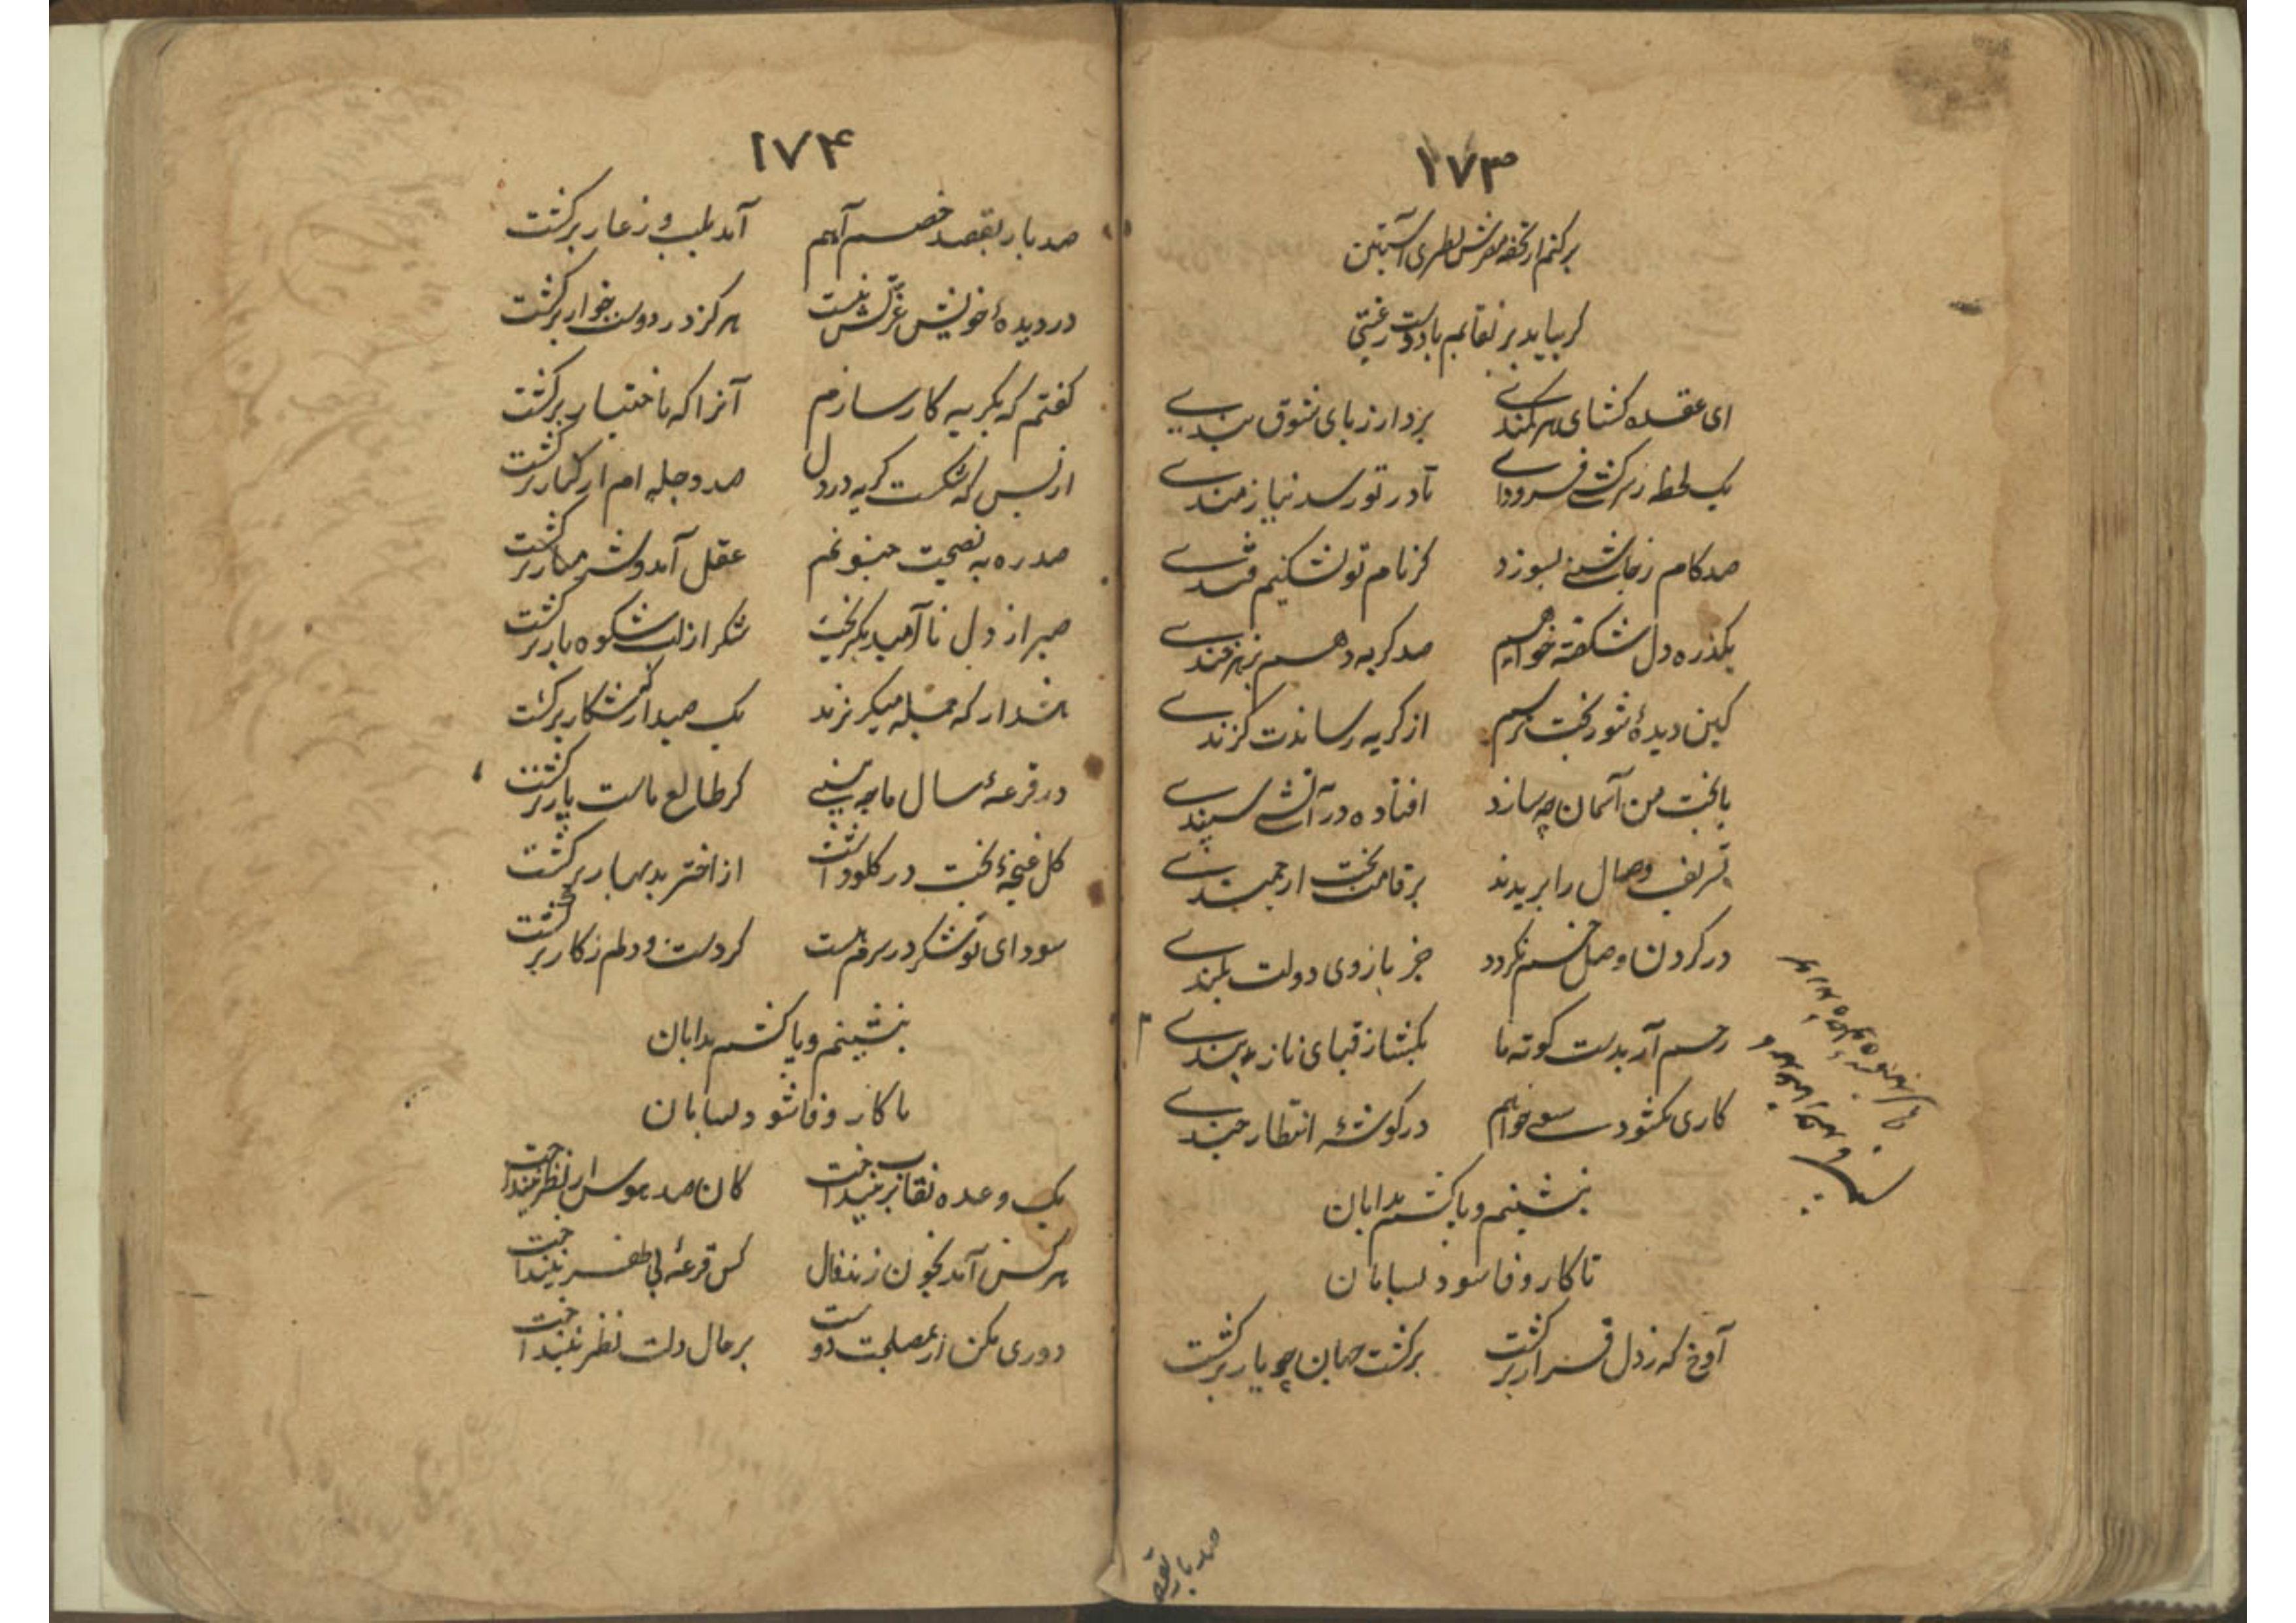 ۱۷۳
برکنم از تحفه مغزش نظری آستین
گر بیاید بر نقابم باد دوست رغبتی
ای عقده کشای هر کمندی بردار ز پای شوق بندی
یک لحظه ز سرکشی فرود آی تا در تو رسد نیازمندی
صد کام ز چاشنی بسوزد گر نام تو نشکنیم قندی
بگذر ه دل شکفته خواهیم صد گریه دهیم بزهرخندی
کین دیدهٔ شور بخت ترسم از گریه رساندت گزندی
با بخت من آسمان چه سازد افتاده در آتشی سپندی
تشریف وصال را بریدند بر قامت بخت ارجمندی
در گردن وصل خم نگردد جز بازوی دولت بلندی
رحم آر بدست کوته ما بگشا ز قبای ناز بندی
کاری نگشود سعی خواهم در گوشهٔ انتظار چندی
بنشینم و پا کشم بدامان
تا کار وفا شود بسامان
آوخ که ز دل قرار برگشت برگشت جهان چو یار برگشت
صد بار بقصد
۱۷۴
صد بار بقصد خصم آهم آمد بلب و ز عار برگشت
در دیدهٔ خویش عزتش نیست هرکز در دوست خوار برگشت
گفتم که بگریه کار سازم آنرا که باختیار برگشت
از بس که شکست گریه در دل صد دجله ام از کنار برگشت
صد ره به نصیحت جنونم عقل آمد و شرمسار برگشت
صبر از دل ناامید بگریخت شکر از لب شکوه بار برگشت
هشدار که جمله میگریزند یک صید گر از شکار برگشت
در قرعهٔ سال ما چه بینی کز طالع ماست پار برگشت
گل غنچهٔ بخت در گلو داشت از اختر بد بهار برگشت
سودای تو شکر در سرم هست گر دست و دلم ز کار برگشت
بنشینم و پا کشم بدامان
تا کار وفا شود بسامان
یک وعده نقاب بر نینداخت کان صد هوس از نظر نینداخت
هر کس آمد بخون زند فال کس قرعهٔ بی ظفر نینداخت
دوری مکن از مصلحت دوست بر حال دلت نظر نینداخت